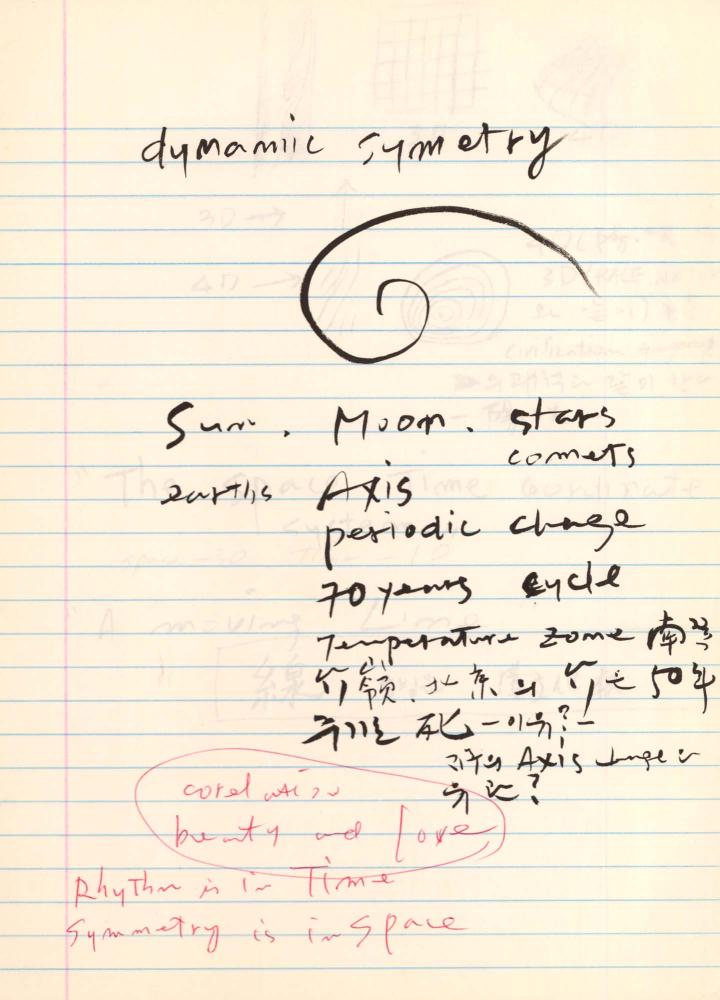 dynamiic symetry
Sun. Moon. stars
comets
earths Axis
periodic change
70 years cycle
Temperature zone 南
竹嶺. 北京의 竹은 50年
주기로 死 - 이유? -
지구의 Axis change
corelation
beauty and Love
Rhythm is in Time
Symmetry is in Space